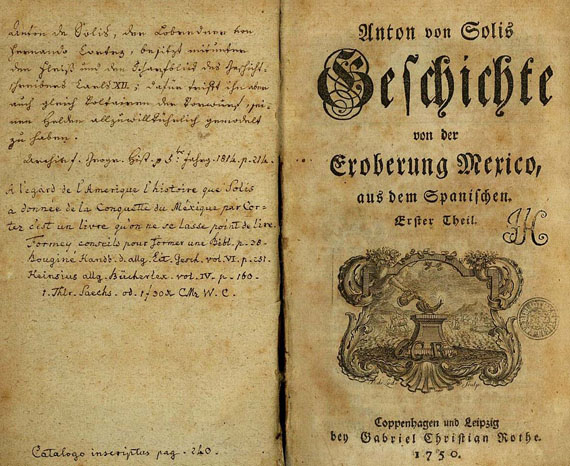 Anton de Solis, der Lobredner von
Hernando Cortez, besitzt mitunter
den Fleiß und den Scharfblick des Geschicht-
schreibers Carls XII; Dafür trifft ihn aber
auch gleich Voltairen der Vorwurf, sei-
nen Helden allzuwillkührlich gemodelt
zu haben.
Archiv f. Geogr. Hist. p 5ter Jahrg. 1814. p. 214.
A l'egard de l'Amerique l'histoire que Solis
a donnée de la Conquette du Méxique par Cor-
tez c'est un livre qu'on ne se lasse point de lire.
Formey conseils pour former une Bibl. p. 28.
Bougine Handb. d. allg. Lit. Gesch. vol. VI. p. 251.
Heinsius allg. Bücherlex. vol. IV. p. 160.
1. Thlr. Saechs. od. C. W. C.
Catalogo inscriptus pag. 240.
Anton von Solis
Geschichte
von der
Eroberung Mexico,
aus dem Spanischen.
Erster Theil.
Coppenhagen und Leipzig
bey Gabriel Christian Rothe.
1750.